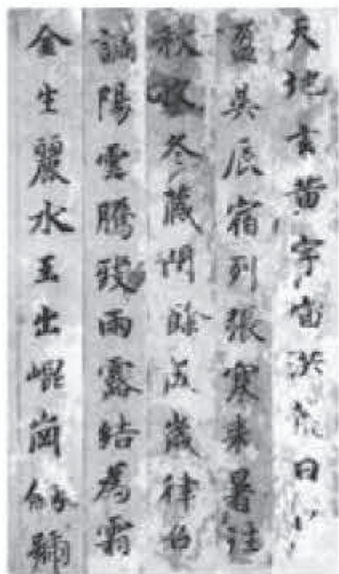 天地玄黄宇宙洪荒日
盈昃辰宿列張寒来暑往
秋收冬藏閏餘成歲律吕
調陽雲騰致雨露結為霜
金生麗水玉出崐崗劒號